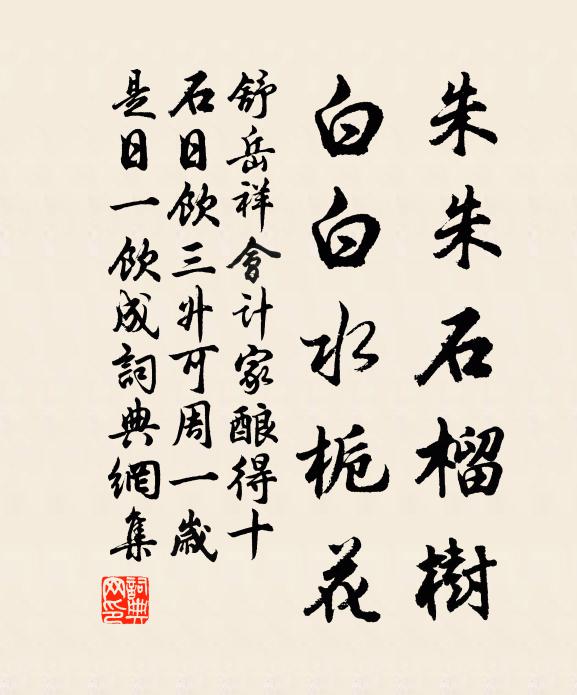 朱朱石榴樹
白白水梔花
舒岳祥會計家酿得十
石日飲三升可周一歲
是日一飲成詞典網集
詞典网印